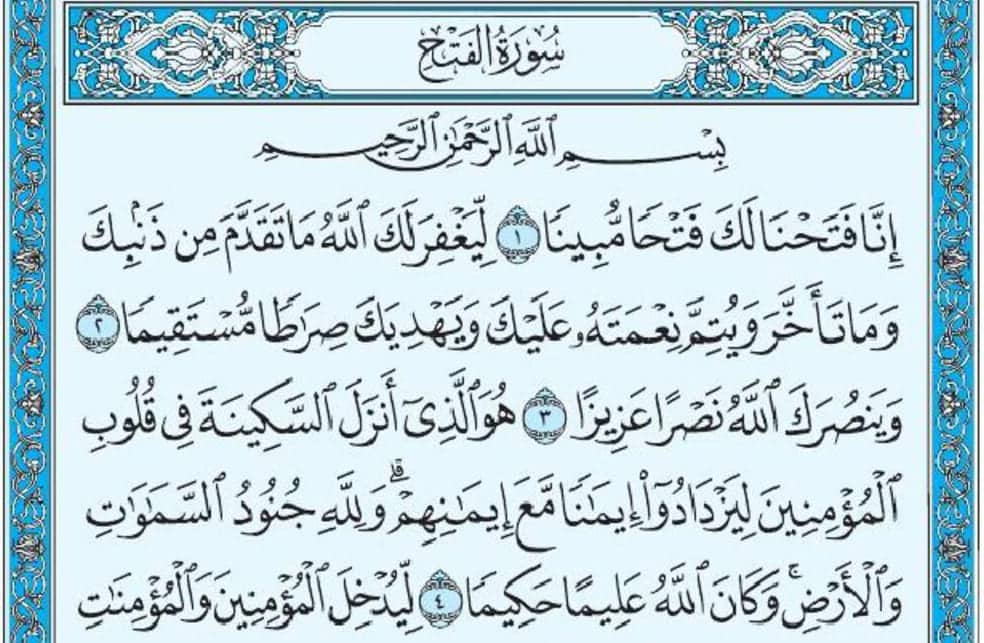 سُورَةُ الفَتْحِ
بِسْمِ ٱللَّهِ ٱلرَّحْمَٰنِ ٱلرَّحِيمِ
إِنَّا فَتَحْنَا لَكَ فَتْحًا مُّبِينًا ١ لِّيَغْفِرَ لَكَ ٱللَّهُ مَا تَقَدَّمَ مِن ذَنۢبِكَ
وَمَا تَأَخَّرَ وَيُتِمَّ نِعْمَتَهُۥ عَلَيْكَ وَيَهْدِيَكَ صِرَٰطًا مُّسْتَقِيمًا ٢
وَيَنصُرَكَ ٱللَّهُ نَصْرًا عَزِيزًا ٣ هُوَ ٱلَّذِىٓ أَنزَلَ ٱلسَّكِينَةَ فِى قُلُوبِ
ٱلْمُؤْمِنِينَ لِيَزْدَادُوٓا۟ إِيمَٰنًا مَّعَ إِيمَٰنِهِمْ ۗ وَلِلَّهِ جُنُودُ ٱلسَّمَٰوَٰتِ
وَٱلْأَرْضِ ۚ وَكَانَ ٱللَّهُ عَلِيمًا حَكِيمًا ٤ لِّيُدْخِلَ ٱلْمُؤْمِنِينَ وَٱلْمُؤْمِنَٰتِ